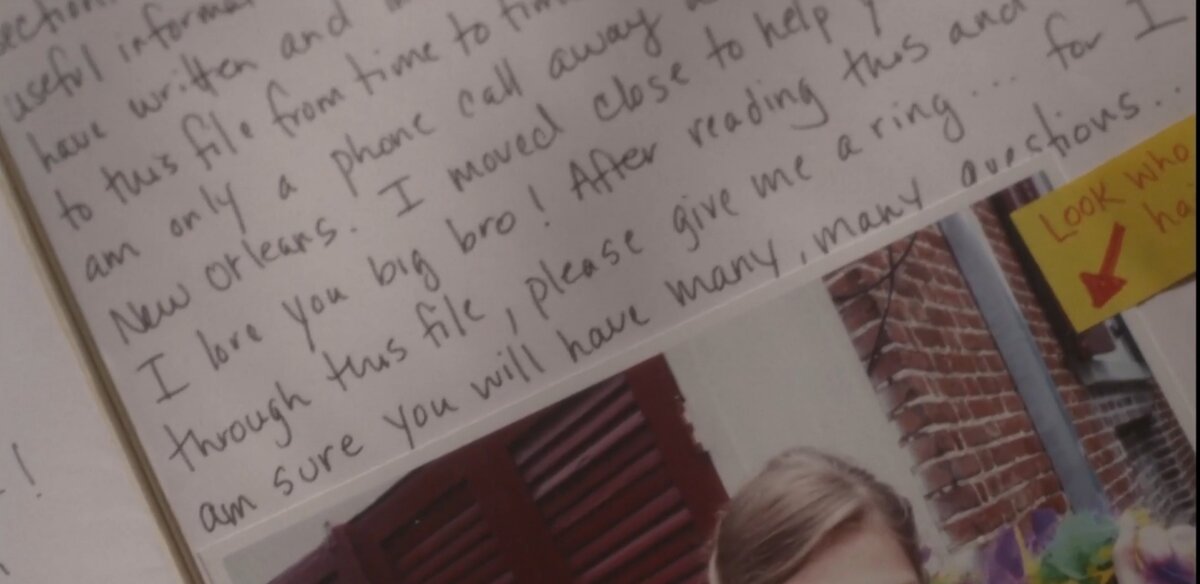 useful
have written and
to this file from time to time
am only a phone call away
New Orleans. I moved close to help
I love you big bro! After reading this and
through this file, please give me a ring... for I
am sure you will have many, many questions...
!
Look who